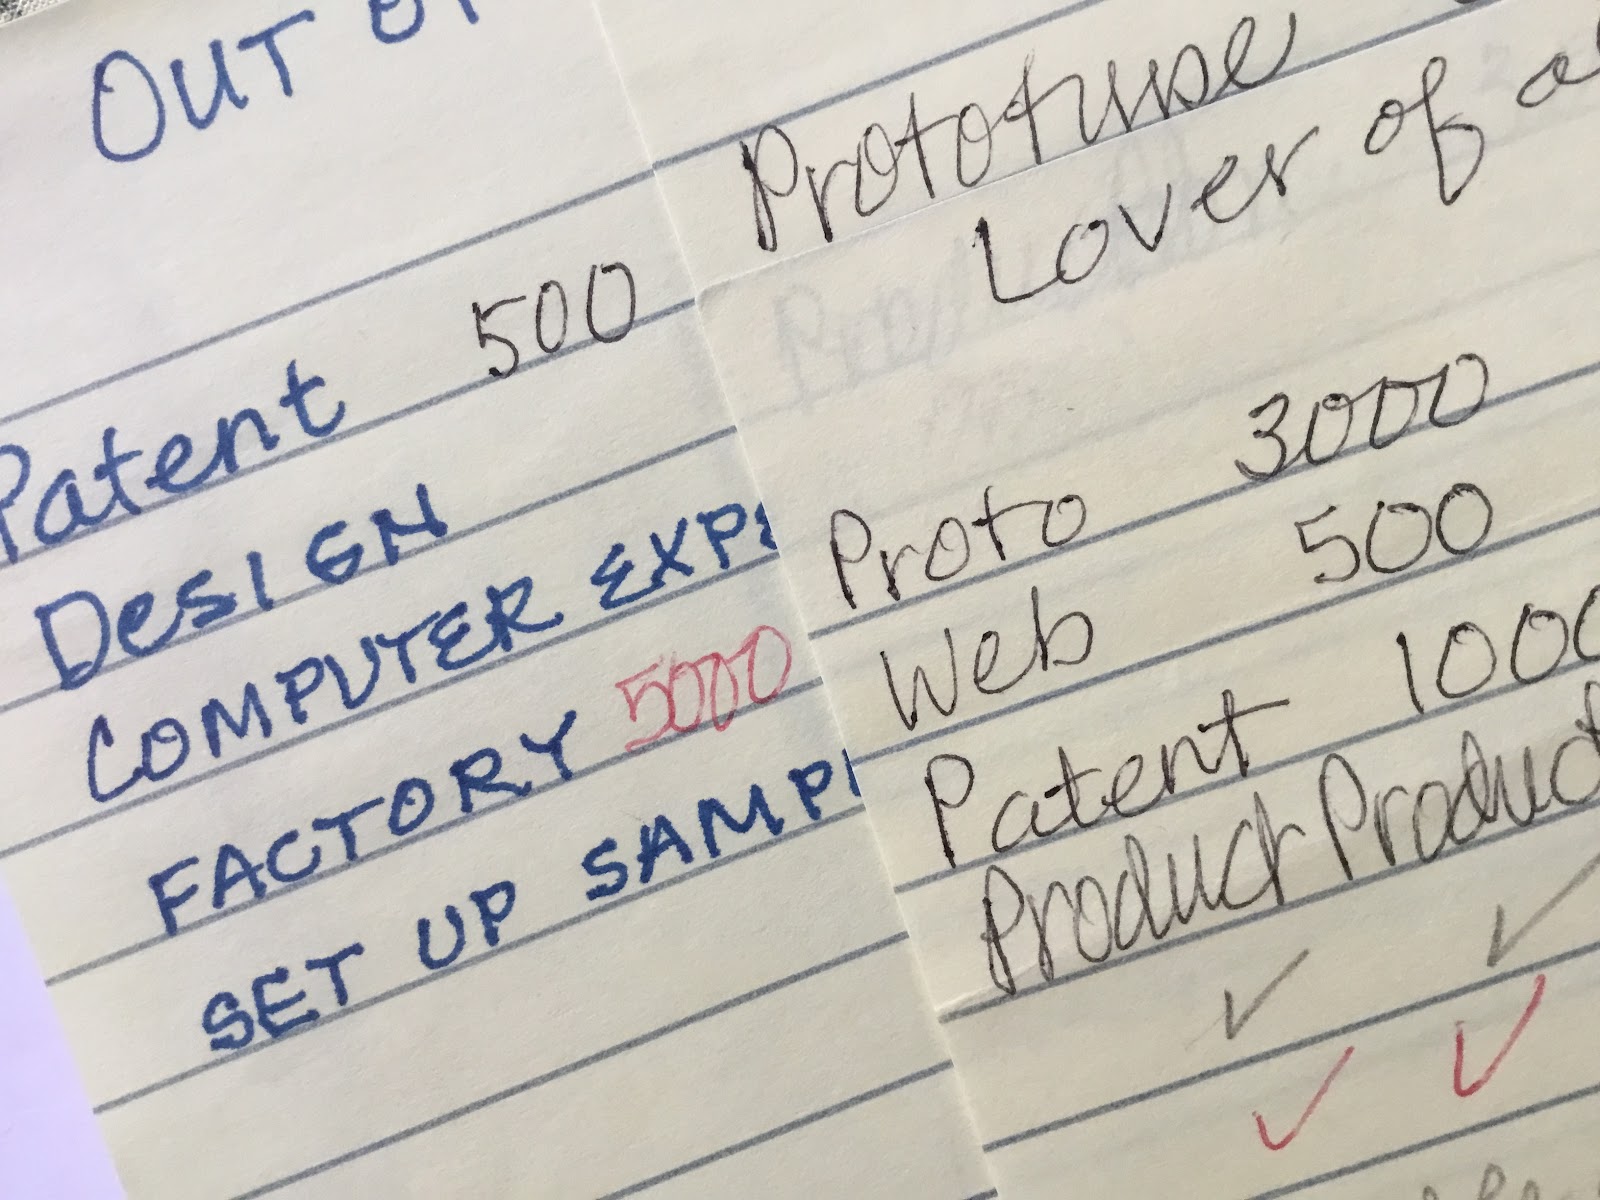 OUT
Patent 500
DESIGN
COMPUTER
FACTORY 5000
SET UP
Prototype
Lover of
Proto 3000
Web 500
Patent 1000
Product Product